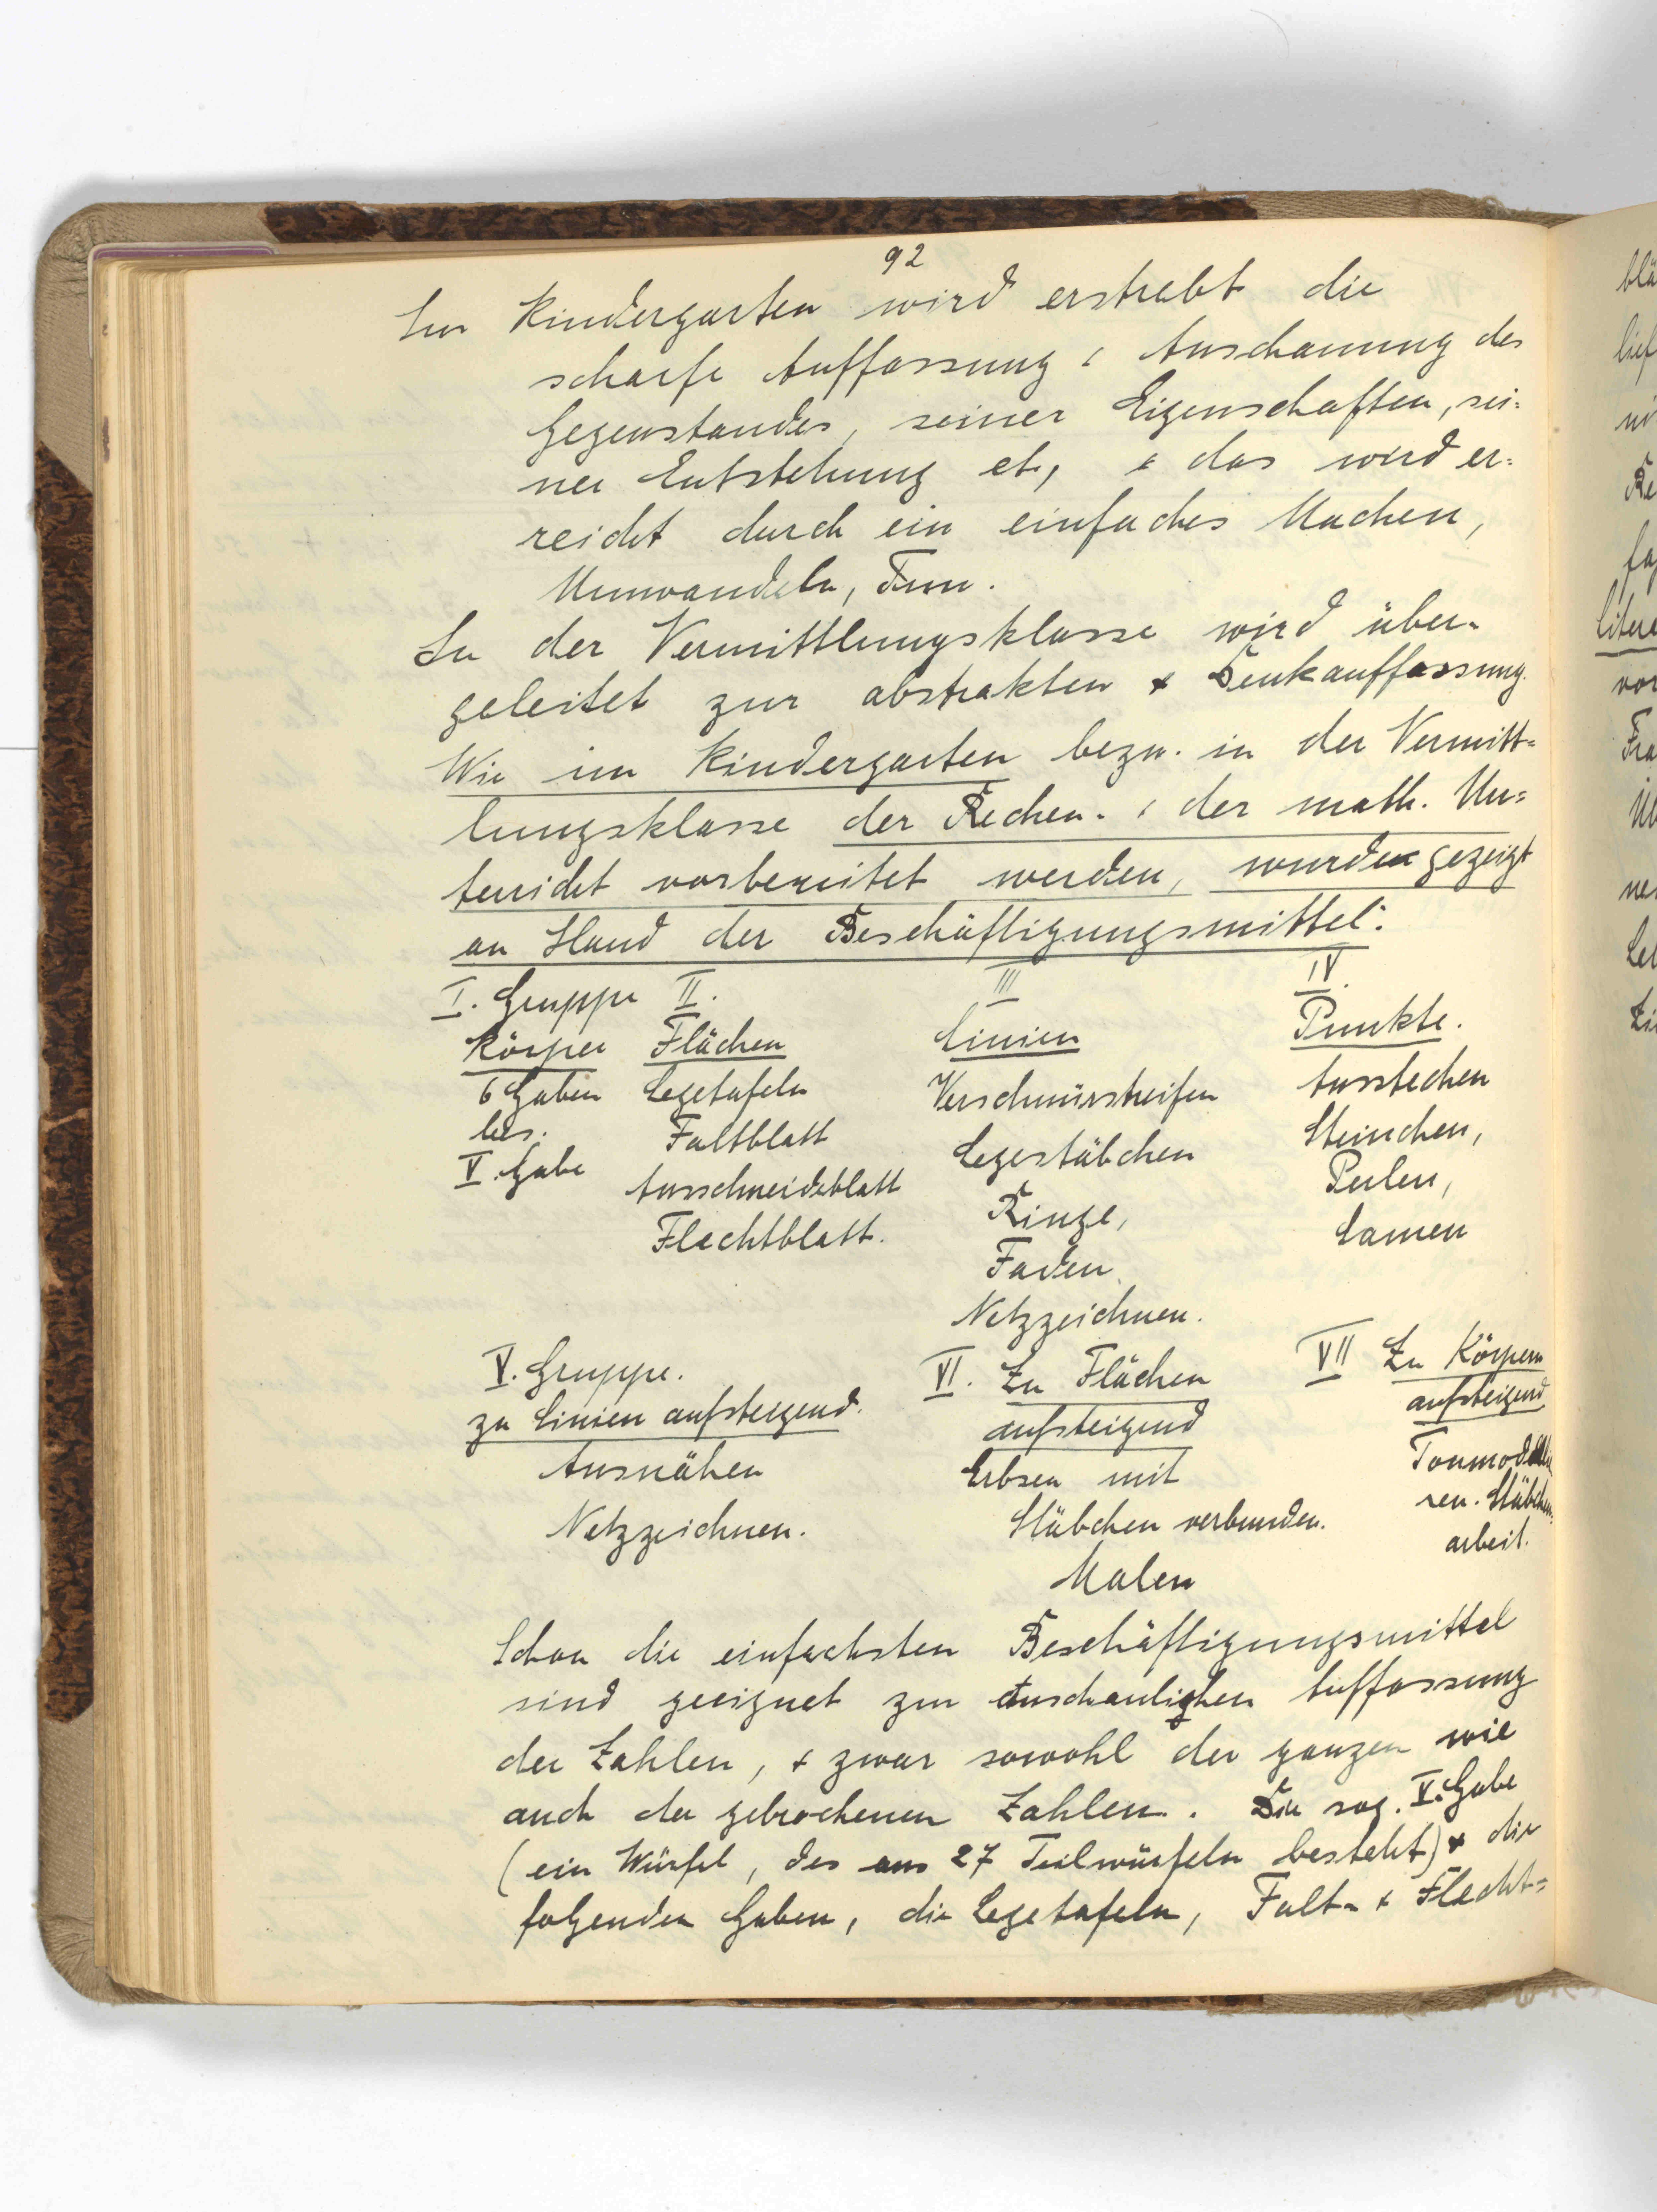 92
Im Kindergarten wird erstrebt die
scharfe Auffassung & Anschauung des
Gegenstandes, seiner Eigenschaften, sei=
ner Entstehung etc, & das wird er=
reicht durch ein einfaches Machen,
Umwandeln, Tun.
In der Vermittlungsklasse wird über-
geleitet zur abstrakten & Denkauffassung.
Wie im Kindergarten bezw. in der Vermitt=
lungsklasse der Rechen- & der math. Un=
terricht vorbereitet werden, wurde gezeigt
an Hand der Beschäftigungsmittel:
I. Gruppe II. III IV.
Körper Flächen Linien Punkte.
6 Gaben Legetafeln Verschnürstreifen Ausstechen
bes. Faltblatt Legestäbchen Steinchen,
V. Gabe Ausschneideblatt Ringe, Perlen,
Flechtblatt. Faden Samen
Netzzeichnen.
V. Gruppe. VI. Zu Flächen VII Zu Körpern
zu Linien aufsteigend. aufsteigend aufsteigend
Ausnähen Erbsen mit Tonmodellie
Netzzeichnen. Stäbchen verbunden. ren. Stäbchen=
Malen arbeit.
Schon die einfachsten Beschäftigungsmittel
sind geeignet zur anschaulichen Auffassung
der Zahlen, & zwar sowohl der ganzen wie
auch der gebrochenen Zahlen. Die sog. V. Gabe
(ein Würfel, der aus 27 Teilwürfeln besteht) & die
folgenden Gaben, die Legetafeln, Falt- & Flecht=